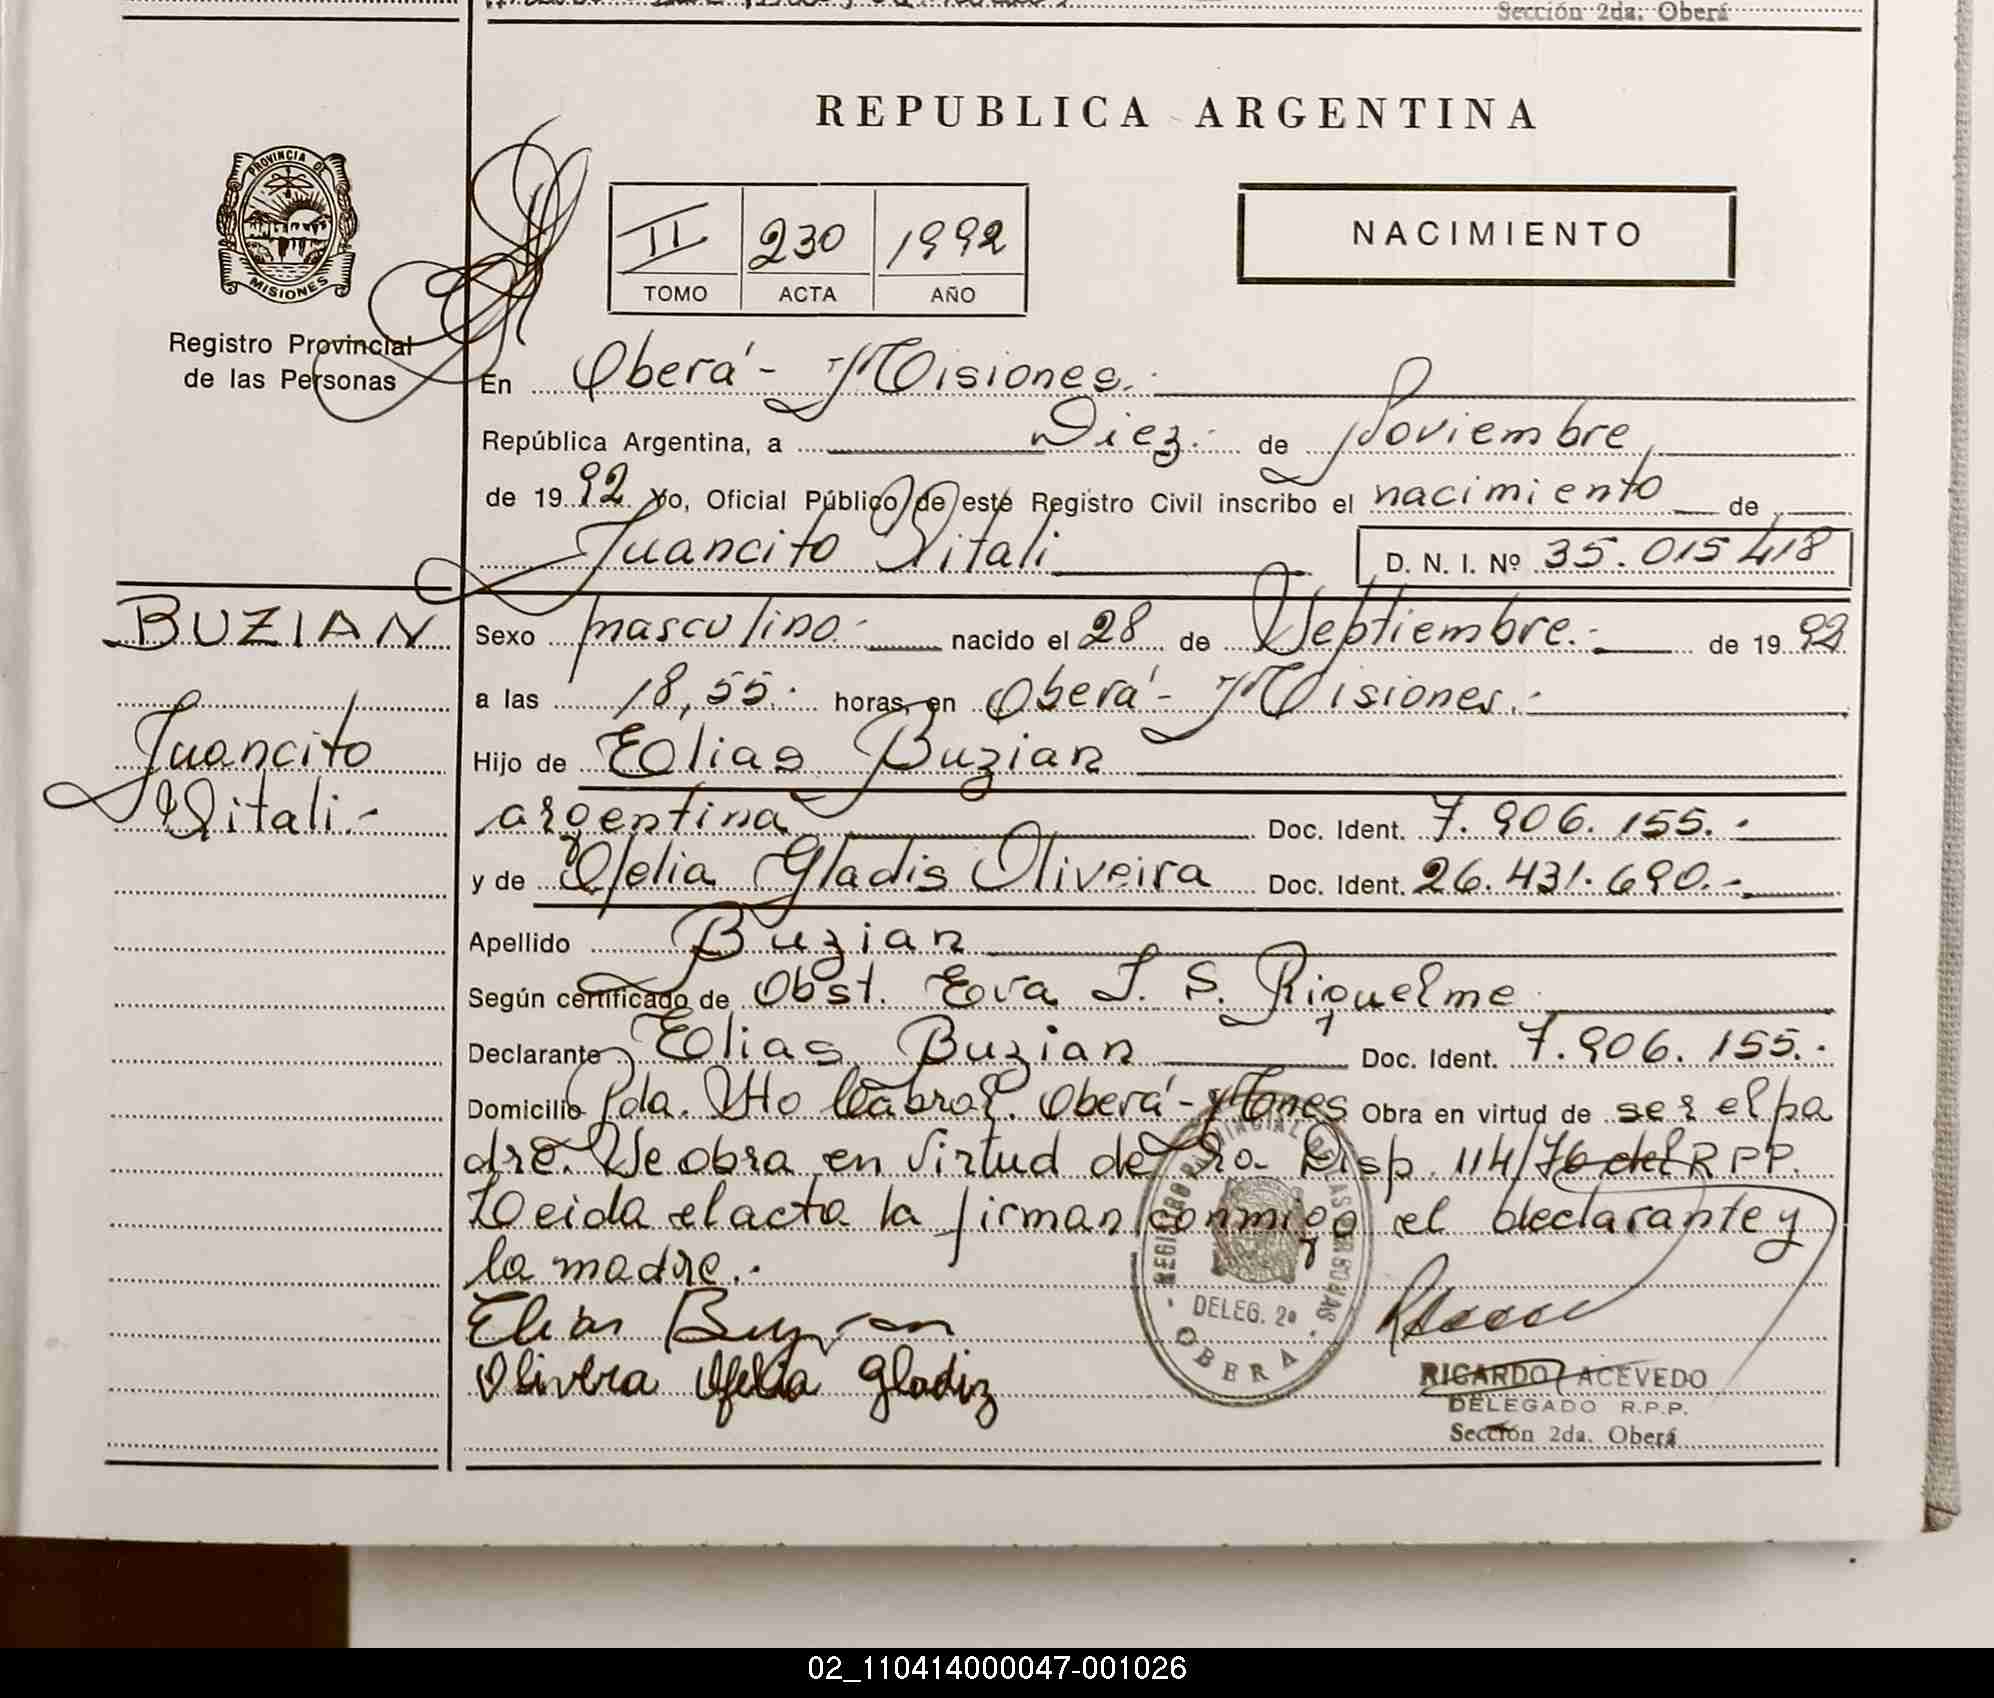 Sección 2da. Oberá
REPUBLICA ARGENTINA
PROVINCIA DE
MISIONES
Registro Provincial
de las Personas
II 230 1992
TOMO ACTA AÑO
NACIMIENTO
En Oberá - Misiones.
República Argentina, a Diez. de Noviembre
de 1992 Yo, Oficial Público de este Registro Civil inscribo el nacimiento de
Juancito Vitali D. N. I. Nº 35.015418
BUZIAN
Juancito
Vitali.-
Sexo masculino. nacido el 28 de Septiembre. de 1992
a las 18,55. horas, en Oberá - Misiones.
Hijo de Elias Buzian
argentina Doc. Ident. 7.906.155.
y de Ofelia Gladis Oliveira Doc. Ident. 26.431.690.-
Apellido Buzian
Según certificado de Obst. Eva S. Riquelme
Declarante Elias Buzian Doc. Ident. 7.906.155.
Domicilio Pda. Sto Cabral. Oberá - Mones Obra en virtud de ser el pa
dre. Se obra en virtud de Disp. 114/76 del RPP.
Leida el acta la firman conmigo el declarante y
la madre.
Elias Buzian
Olivera Ofelia Gladiz
REGISTRO PROVINCIAL DE LAS PERSONAS
DELEG. 2ª
OBERA
RICARDO ACEVEDO
DELEGADO R.P.P.
Sección 2da. Oberá
02_110414000047-001026